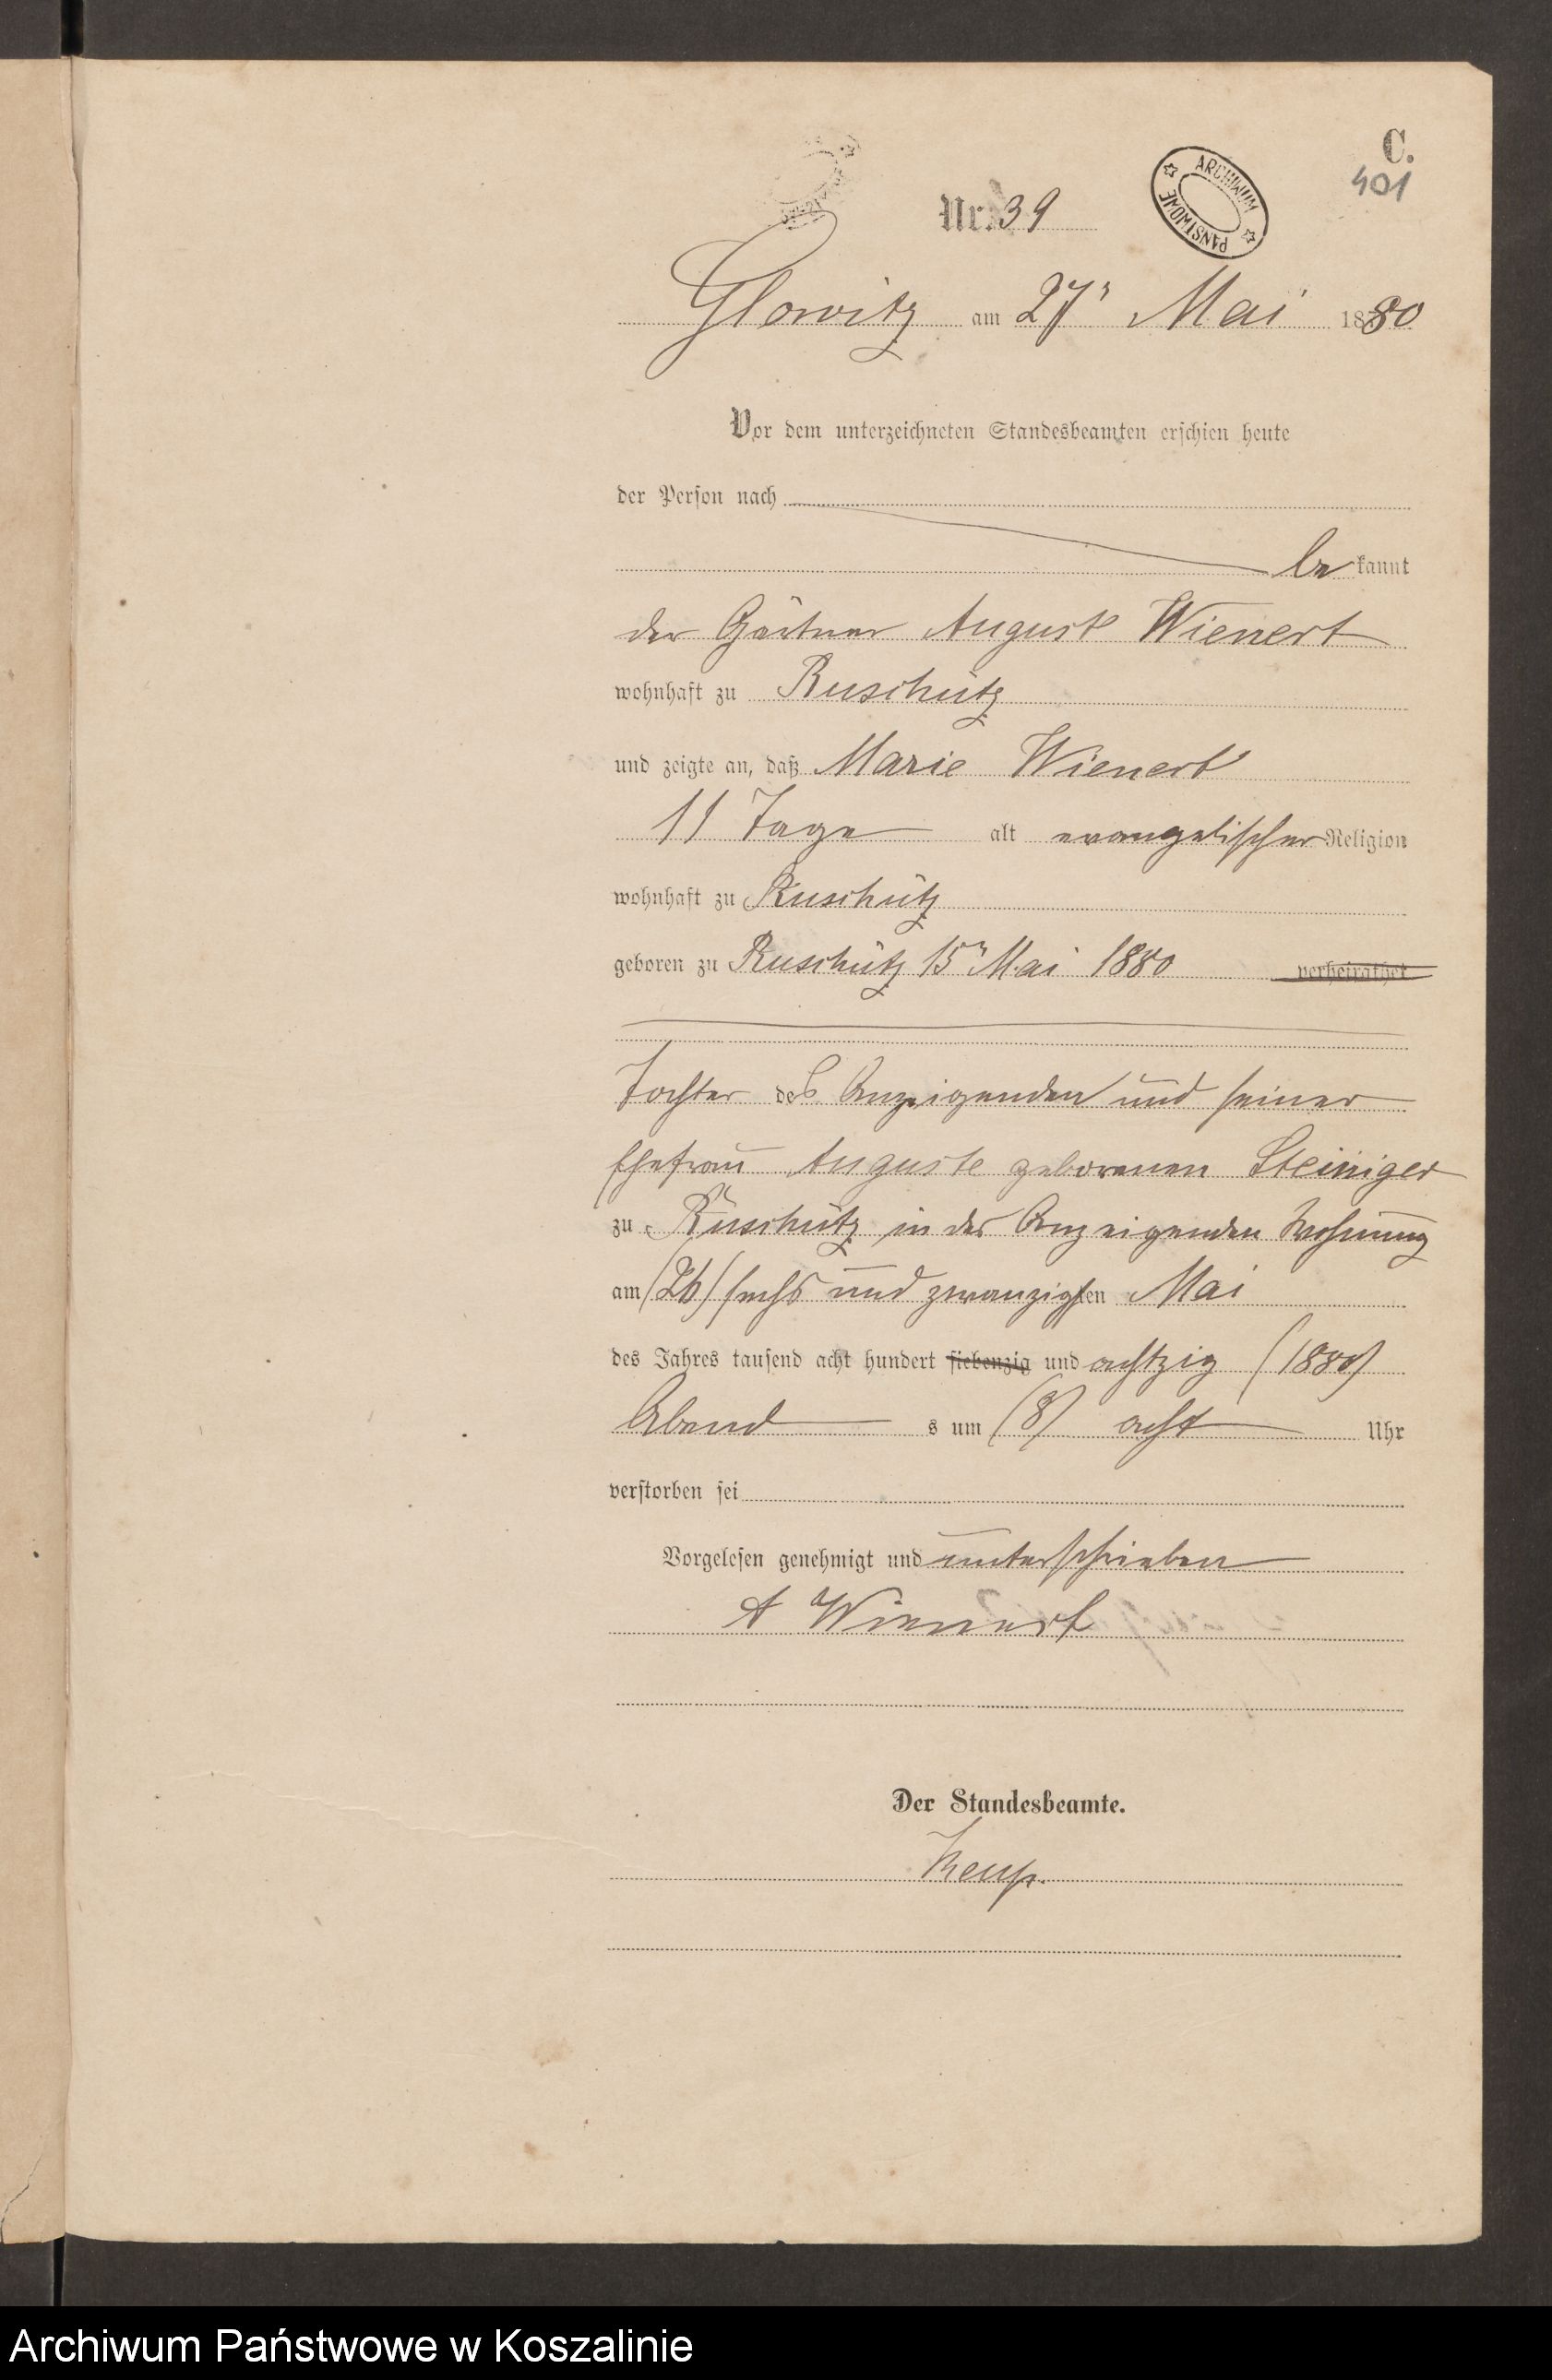 C.
401
ARCHIWUM PAŃSTWOWE
Nr. 39
Glowitz am 27" Mai 1880
Vor dem unterzeichneten Standesbeamten erschien heute
der Person nach
bekannt
der Gärtner August Wienert
wohnhaft zu Ruschütz
und zeigte an, daß Marie Wienert
11 Tage alt evangelischer Religion
wohnhaft zu Ruschütz
geboren zu Ruschütz 15" Mai 1880 verheirathet
Tochter des Anzeigenden und seiner
Ehefrau Auguste geborenen Steiniger
zu Ruschütz in des Anzeigenden Wohnung
am (26) sechs und zwanzigsten Mai
des Jahres tausend acht hundert siebenzig und achtzig (1880)
Abends um (8) acht Uhr
verstorben sei
Vorgelesen genehmigt und unterschrieben
A Wienert
Der Standesbeamte.
Archiwum Państwowe w Koszalinie